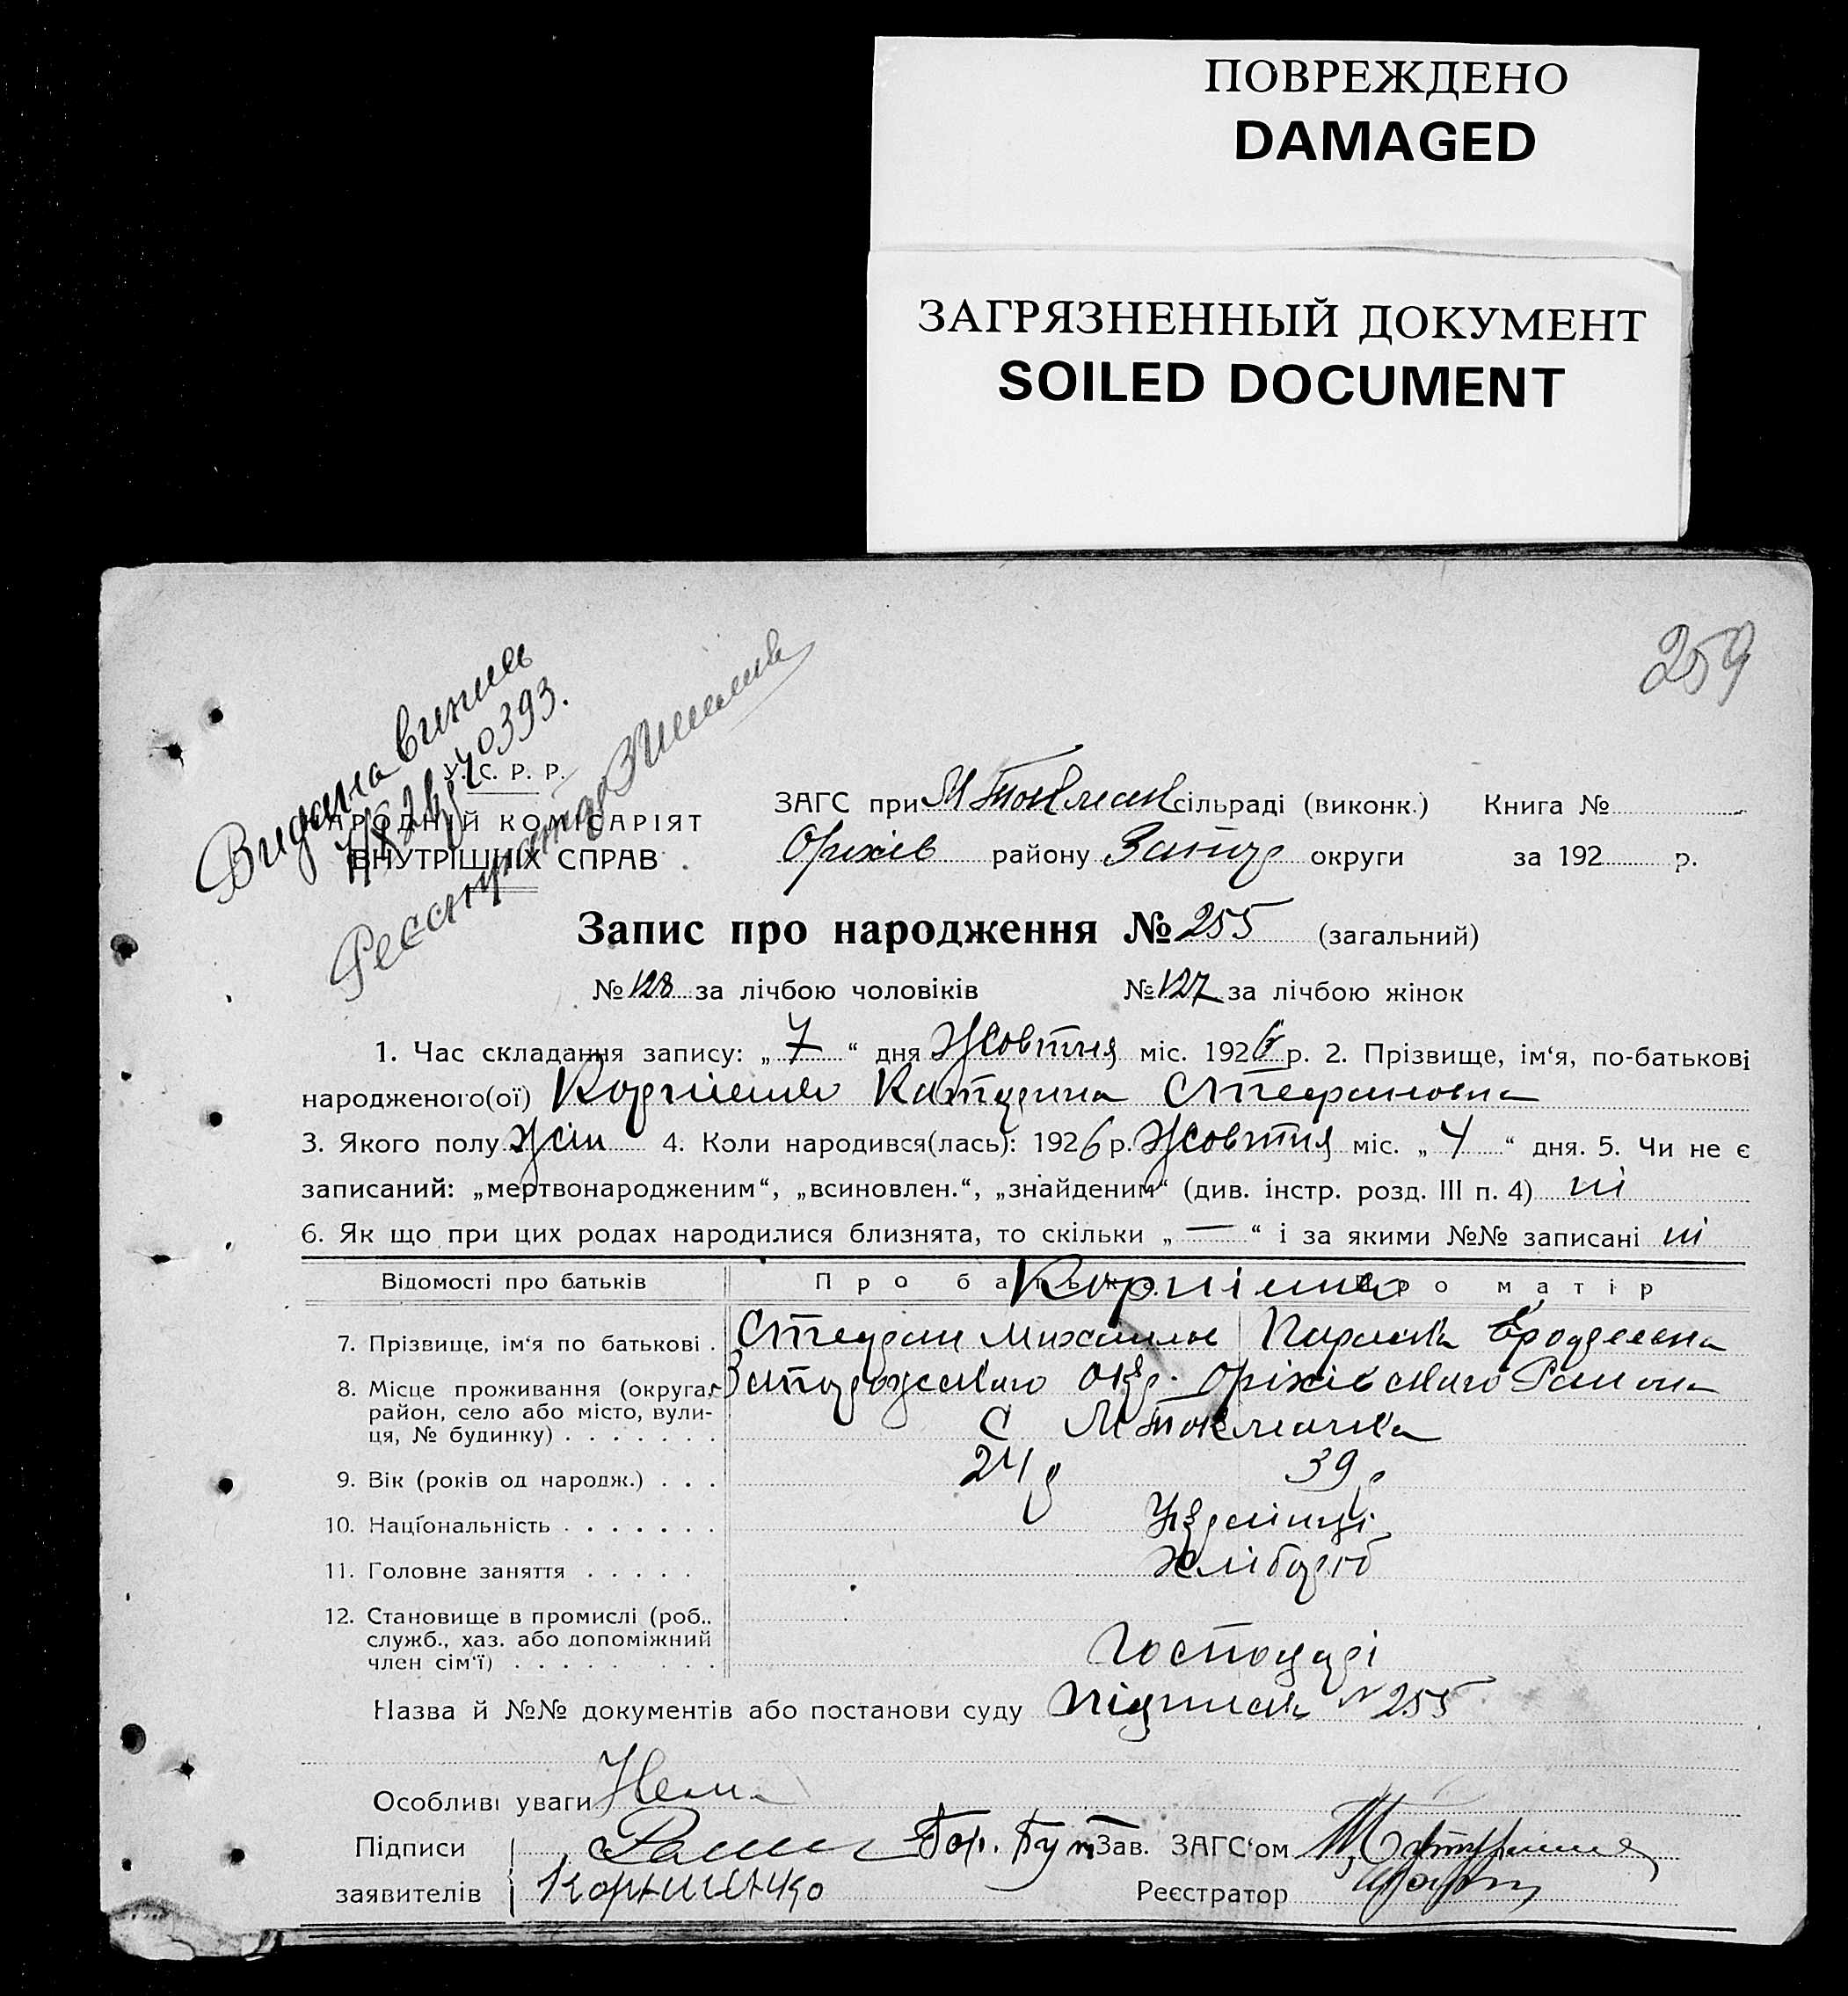 ПОВРЕЖДЕНО
DAMAGED
ЗАГРЯЗНЕННЫЙ ДОКУМЕНТ
SOILED DOCUMENT
259
Видана
У. С. Р. Р.
НАРОДНІЙ КОМІСАРІЯТ
ВНУТРІШНІХ СПРАВ
ЗАГС при М Токмак сільраді (виконк.) Книга №
Оріхів району Запор округи за 192 р.
Запис про народження № 255 (загальний)
№ 128 за лічбою чоловіків № 127 за лічбою жінок
1. Час складання запису: „ 7 “ дня Жовтня міс. 1926 р. 2. Прізвище, ім‘я, по-батькові
народженого(ої) Корнієнко Катерина Стефановна
3. Якого полу жін 4. Коли народився(лась): 1926 р. Жовтня міс. „ 4 “ дня. 5. Чи не є
записаний: „мертвонародженим“, „всиновлен.“, „знайденим“ (див. інстр. розд. III п. 4) ні
6. Як що при цих родах народилися близнята, то скільки „ — “ і за якими №№ записані ні
Відомості про батьків Про батька Про матір
Корнієнко
7. Прізвище, ім‘я по батькові . Стефан Михайлов Параска
8. Місце проживання (округа, Запорожского окр. Оріхівского Района
район, село або місто, вули-
ця, № будинку) . . . . . . . С М Токмачка
9. Вік (років од народж.) . . . 24 р 39 р
10. Національність . . . . . . . Українці
11. Головне заняття . . . . . хлібороб
12. Становище в промислі (роб.,
служб., хаз. або допоміжний
член сім‘ї) . . . . . . . . . Господарі
Назва й №№ документів або постанови суду Підписка N 255
Особливі уваги Нема
Підписи
Зав. ЗАГС‘ом
заявителів Корниенко Реєстратор